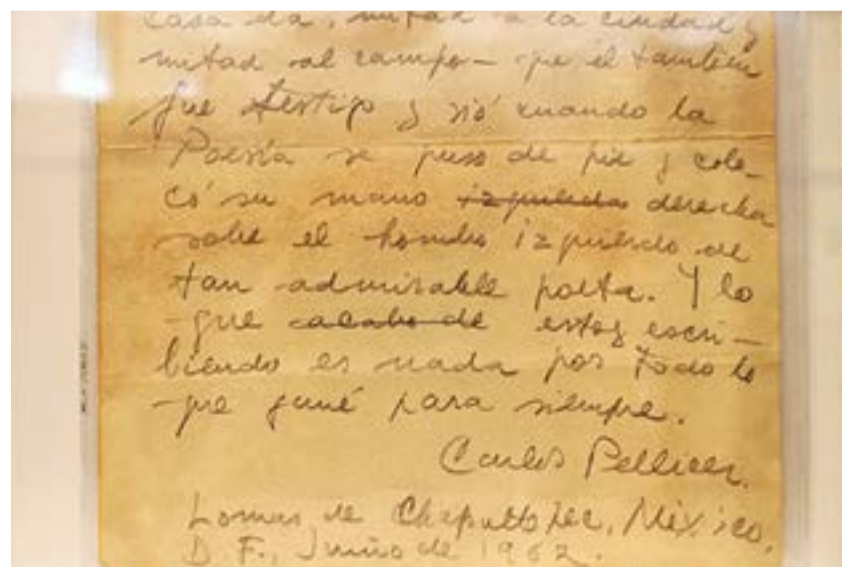 casa da, mitad a la ciudad y
mitad al campo – que él también
fue testigo y vió cuando la
Poesía se puso de pie y colo-
có su mano izquierda derecha
sobre el hombro izquierdo de
tan admirable poeta. Y lo
que acabo de estoy escri-
biendo es nada por todo lo
que gané para siempre.
Carlos Pellicer.
Lomas de Chapultepec, México,
D. F., Junio de 1962.